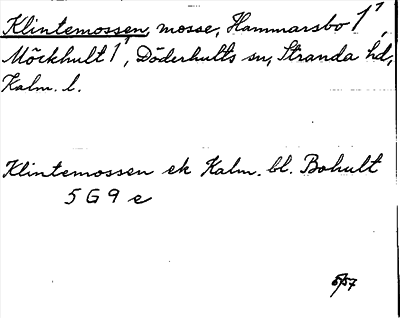 Klintemossen, mosse, Hammarsbo 1¹,
Möckhult 1¹, Döderhults sn, Stranda hd,
Kalm. l.
Klintemossen ek Kalm. bl. Bohult
5 G 9 e
5/57